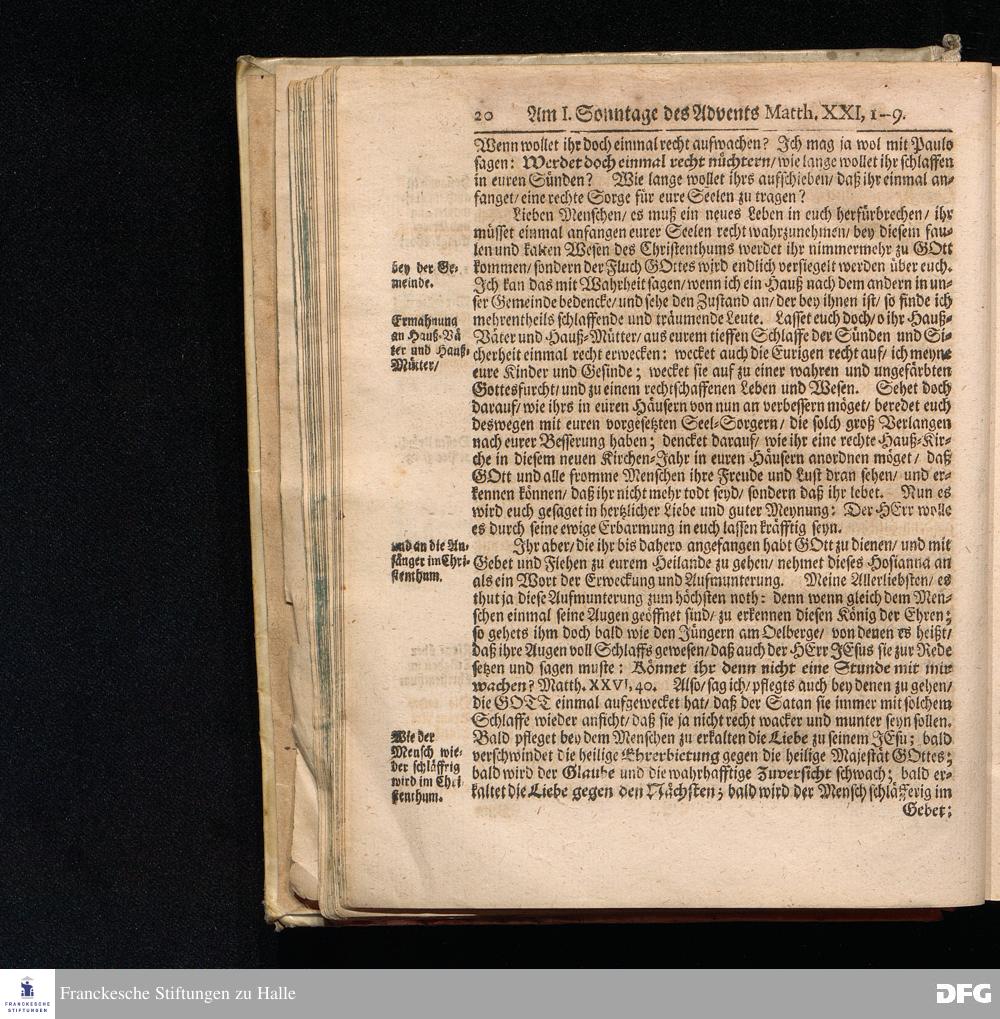 20 Am I. Sonntage des Advents Matth. XXI, 1-9.
Wenn wollet ihr doch einmal recht aufwachen? Ich mag ja wol mit Paulo
sagen: Werdet doch einmal recht nüchtern/ wie lange wollet ihr schlaffen
in euren Sünden? Wie lange wollet ihrs aufschieben/ daß ihr einmal an-
fanget/ eine rechte Sorge für eure Seelen zu tragen?
Lieben Menschen/ es muß ein neues Leben in euch herfürbrechen/ ihr
müsset einmal anfangen eurer Seelen recht wahrzunehmen/ bey diesem fau-
len und kalten Wesen des Christenthums werdet ihr nimmermehr zu GOtt
kommen/ sondern der Fluch GOttes wird endlich versiegelt werden über euch.
Ich kan das mit Wahrheit sagen/ wenn ich ein Hauß nach dem andern in un-
ser Gemeinde bedencke/ und sehe den Zustand an/ der bey ihnen ist/ so finde ich
mehrentheils schlaffende und träumende Leute. Lasset euch doch/ o ihr Hauß-
Väter und Hauß-Mütter/ aus eurem tieffen Schlaffe der Sünden und Si-
cherheit einmal recht erwecken: wecket auch die Eurigen recht auf/ ich meyne
eure Kinder und Gesinde; wecket sie auf zu einer wahren und ungefärbten
Gottesfurcht/ und zu einem rechtschaffenen Leben und Wesen. Sehet doch
darauf/ wie ihrs in euren Häusern von nun an verbessern möget/ beredet euch
deswegen mit euren vorgesetzten Seel-Sorgern/ die solch groß Verlangen
nach eurer Besserung haben; dencket darauf/ wie ihr eine rechte Hauß-Kir-
che in diesem neuen Kirchen-Jahr in euren Häusern anordnen möget/ daß
GOtt und alle fromme Menschen ihre Freude und Lust dran sehen/ und er-
kennen können/ daß ihr nicht mehr todt seyd/ sondern daß ihr lebet. Nun es
wird euch gesaget in hertzlicher Liebe und guter Meynung: Der HErr wolle
es durch seine ewige Erbarmung in euch lassen kräfftig seyn.
Ihr aber/ die ihr bis dahero angefangen habt GOtt zu dienen/ und mit
Gebet und Flehen zu eurem Heilande zu gehen/ nehmet dieses Hosianna an
als ein Wort der Erweckung und Aufmunterung. Meine Allerliebsten/ es
thut ja diese Aufmunterung zum höchsten noth: denn wenn gleich dem Men-
schen einmal seine Augen geöffnet sind/ zu erkennen diesen König der Ehren;
so gehets ihm doch bald wie den Jüngern am Oelberge/ von denen es heißt/
daß ihre Augen voll Schlaffs gewesen/ daß auch der HErr JEsus sie zur Rede
setzen und sagen muste: Könnet ihr denn nicht eine Stunde mit mir
wachen? Matth. XXVI, 40. Also/ sag ich/ pflegts auch bey denen zu gehen/
die GOTT einmal aufgewecket hat/ daß der Satan sie immer mit solchem
Schlaffe wieder anficht/ daß sie ja nicht recht wacker und munter seyn sollen.
Bald pfleget bey dem Menschen zu erkalten die Liebe zu seinem JEsu; bald
verschwindet die heilige Ehrerbietung gegen die heilige Majestät GOttes;
bald wird der Glaube und die wahrhafftige Zuversicht schwach; bald er-
kaltet die Liebe gegen den Nächsten; bald wird der Mensch schläfferig im
Gebet;
bey der Ge-
meinde.
Ermahnung
an Hauß-Vä
ter und Hauß-
Mütter/
und an die An-
fänger im Chri-
stenthum.
Wie der
Mensch wie-
der schläffrig
wird im Chri-
stenthum.
FRANCKESCHE
STIFTUNGEN
Franckesche Stiftungen zu Halle
DFG